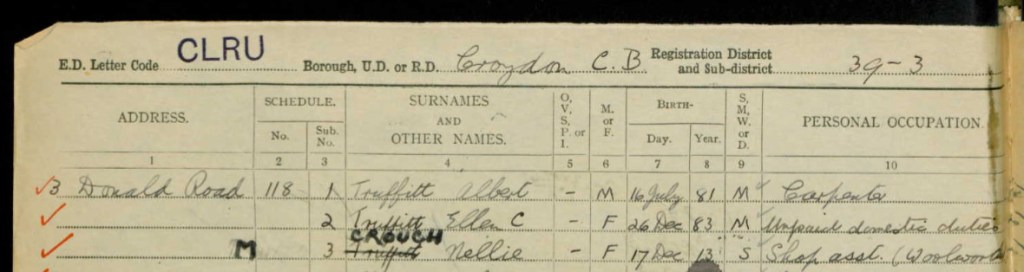 CLRU
E.D. Letter Code Borough, U.D. or R.D. Croydon C.B Registration District and Sub-district 39-3
ADDRESS. SCHEDULE. No. Sub. No. SURNAMES AND OTHER NAMES. O, V, S, P, or I. M. or F. BIRTH- Day. Year. S, M, W, or D. PERSONAL OCCUPATION.
1 2 3 4 5 6 7 8 9 10
3 Donald Road 118 1 Truffitt Albert - M 16 July 81 M Carpenter
2 Truffitt Ellen C - F 26 Dec 83 M Unpaid domestic duties
CROUCH
M 3 Truffitt Nellie - F 17 Dec 13 S Shop asst. (Woolwor